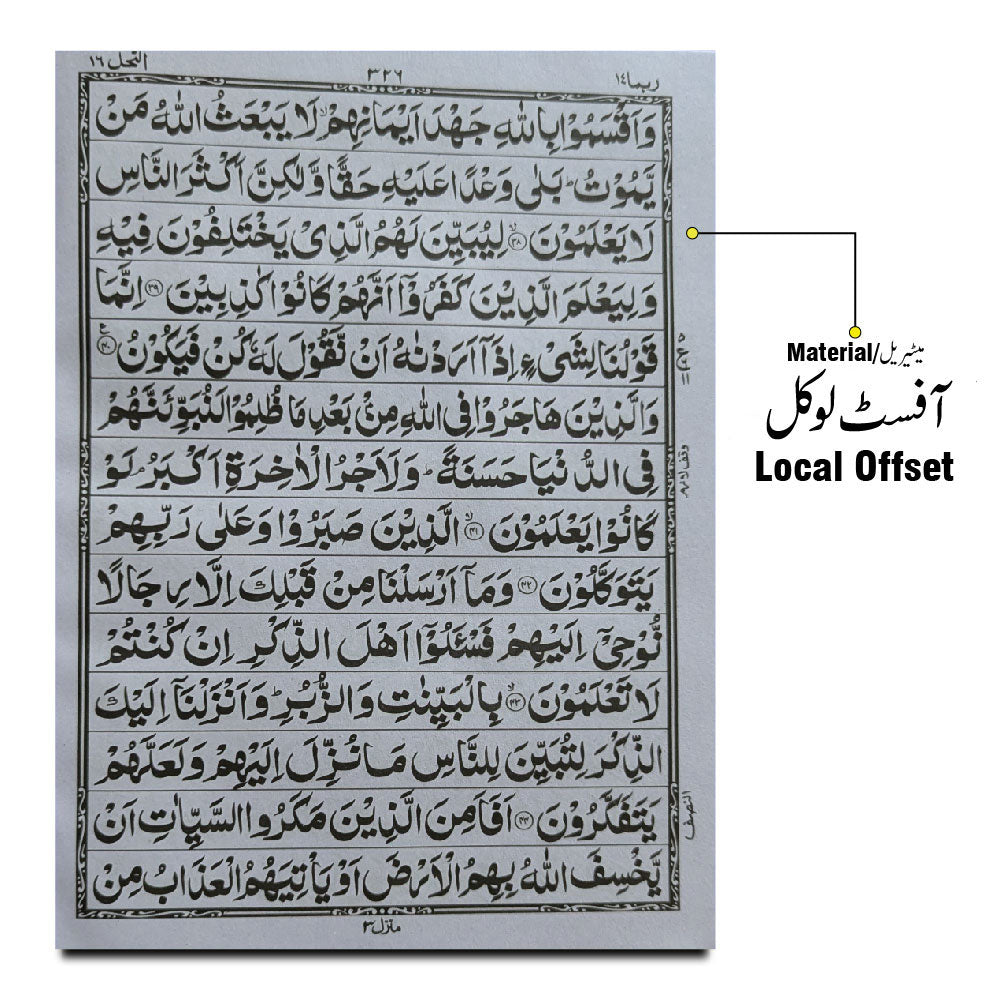 النحل ١٦
٣٢٦
ربما ١٤
وَاَقْسَمُوْا بِاللّٰهِ جَهْدَ اَيْمَانِهِمْ ۙ لَا يَبْعَثُ اللّٰهُ مَنْ
يَّمُوْتُ ؕ بَلٰى وَعْدًا عَلَيْهِ حَقًّا وَّلٰكِنَّ اَكْثَرَ النَّاسِ
لَا يَعْلَمُوْنَ ۙ‏﴿۳۸﴾ لِيُبَيِّنَ لَهُمُ الَّذِىْ يَخْتَلِفُوْنَ فِيْهِ
وَلِيَعْلَمَ الَّذِيْنَ كَفَرُوْۤا اَنَّهُمْ كَانُوْا كٰذِبِيْنَ ﴿۳۹﴾ اِنَّمَا
قَوْلُنَا لِشَىْءٍ اِذَاۤ اَرَدْنٰهُ اَنْ نَّقُوْلَ لَهٗ كُنْ فَيَكُوْنُ ﴿۴۰﴾ ع
وَالَّذِيْنَ هَاجَرُوْا فِى اللّٰهِ مِنْۢ بَعْدِ مَا ظُلِمُوْا لَنُبَوِّئَنَّهُمْ
فِى الدُّنْيَا حَسَنَةً ؕ وَلَاَجْرُ الْاٰخِرَةِ اَكْبَرُ ۘ لَوْ
كَانُوْا يَعْلَمُوْنَ ۙ‏﴿۴۱﴾ الَّذِيْنَ صَبَرُوْا وَعَلٰى رَبِّهِمْ
يَتَوَكَّلُوْنَ ﴿۴۲﴾ وَمَاۤ اَرْسَلْنَا مِنْ قَبْلِكَ اِلَّا رِجَالًا
نُّوْحِىْۤ اِلَيْهِمْ فَسْئَلُوْۤا اَهْلَ الذِّكْرِ اِنْ كُنْتُمْ
لَا تَعْلَمُوْنَ ۙ‏﴿۴۳﴾ بِالْبَيِّنٰتِ وَالزُّبُرِ ؕ وَاَنْزَلْنَاۤ اِلَيْكَ
الذِّكْرَ لِتُبَيِّنَ لِلنَّاسِ مَا نُزِّلَ اِلَيْهِمْ وَلَعَلَّهُمْ
يَتَفَكَّرُوْنَ ﴿۴۴﴾ اَفَاَمِنَ الَّذِيْنَ مَكَرُوا السَّيِّاٰتِ اَنْ
يَّخْسِفَ اللّٰهُ بِهِمُ الْاَرْضَ اَوْ يَاْتِيَهُمُ الْعَذَابُ مِنْ
وقف لازم
النصف
منزل ٣
Material/میٹیریل
آفسٹ لوکل
Local Offset